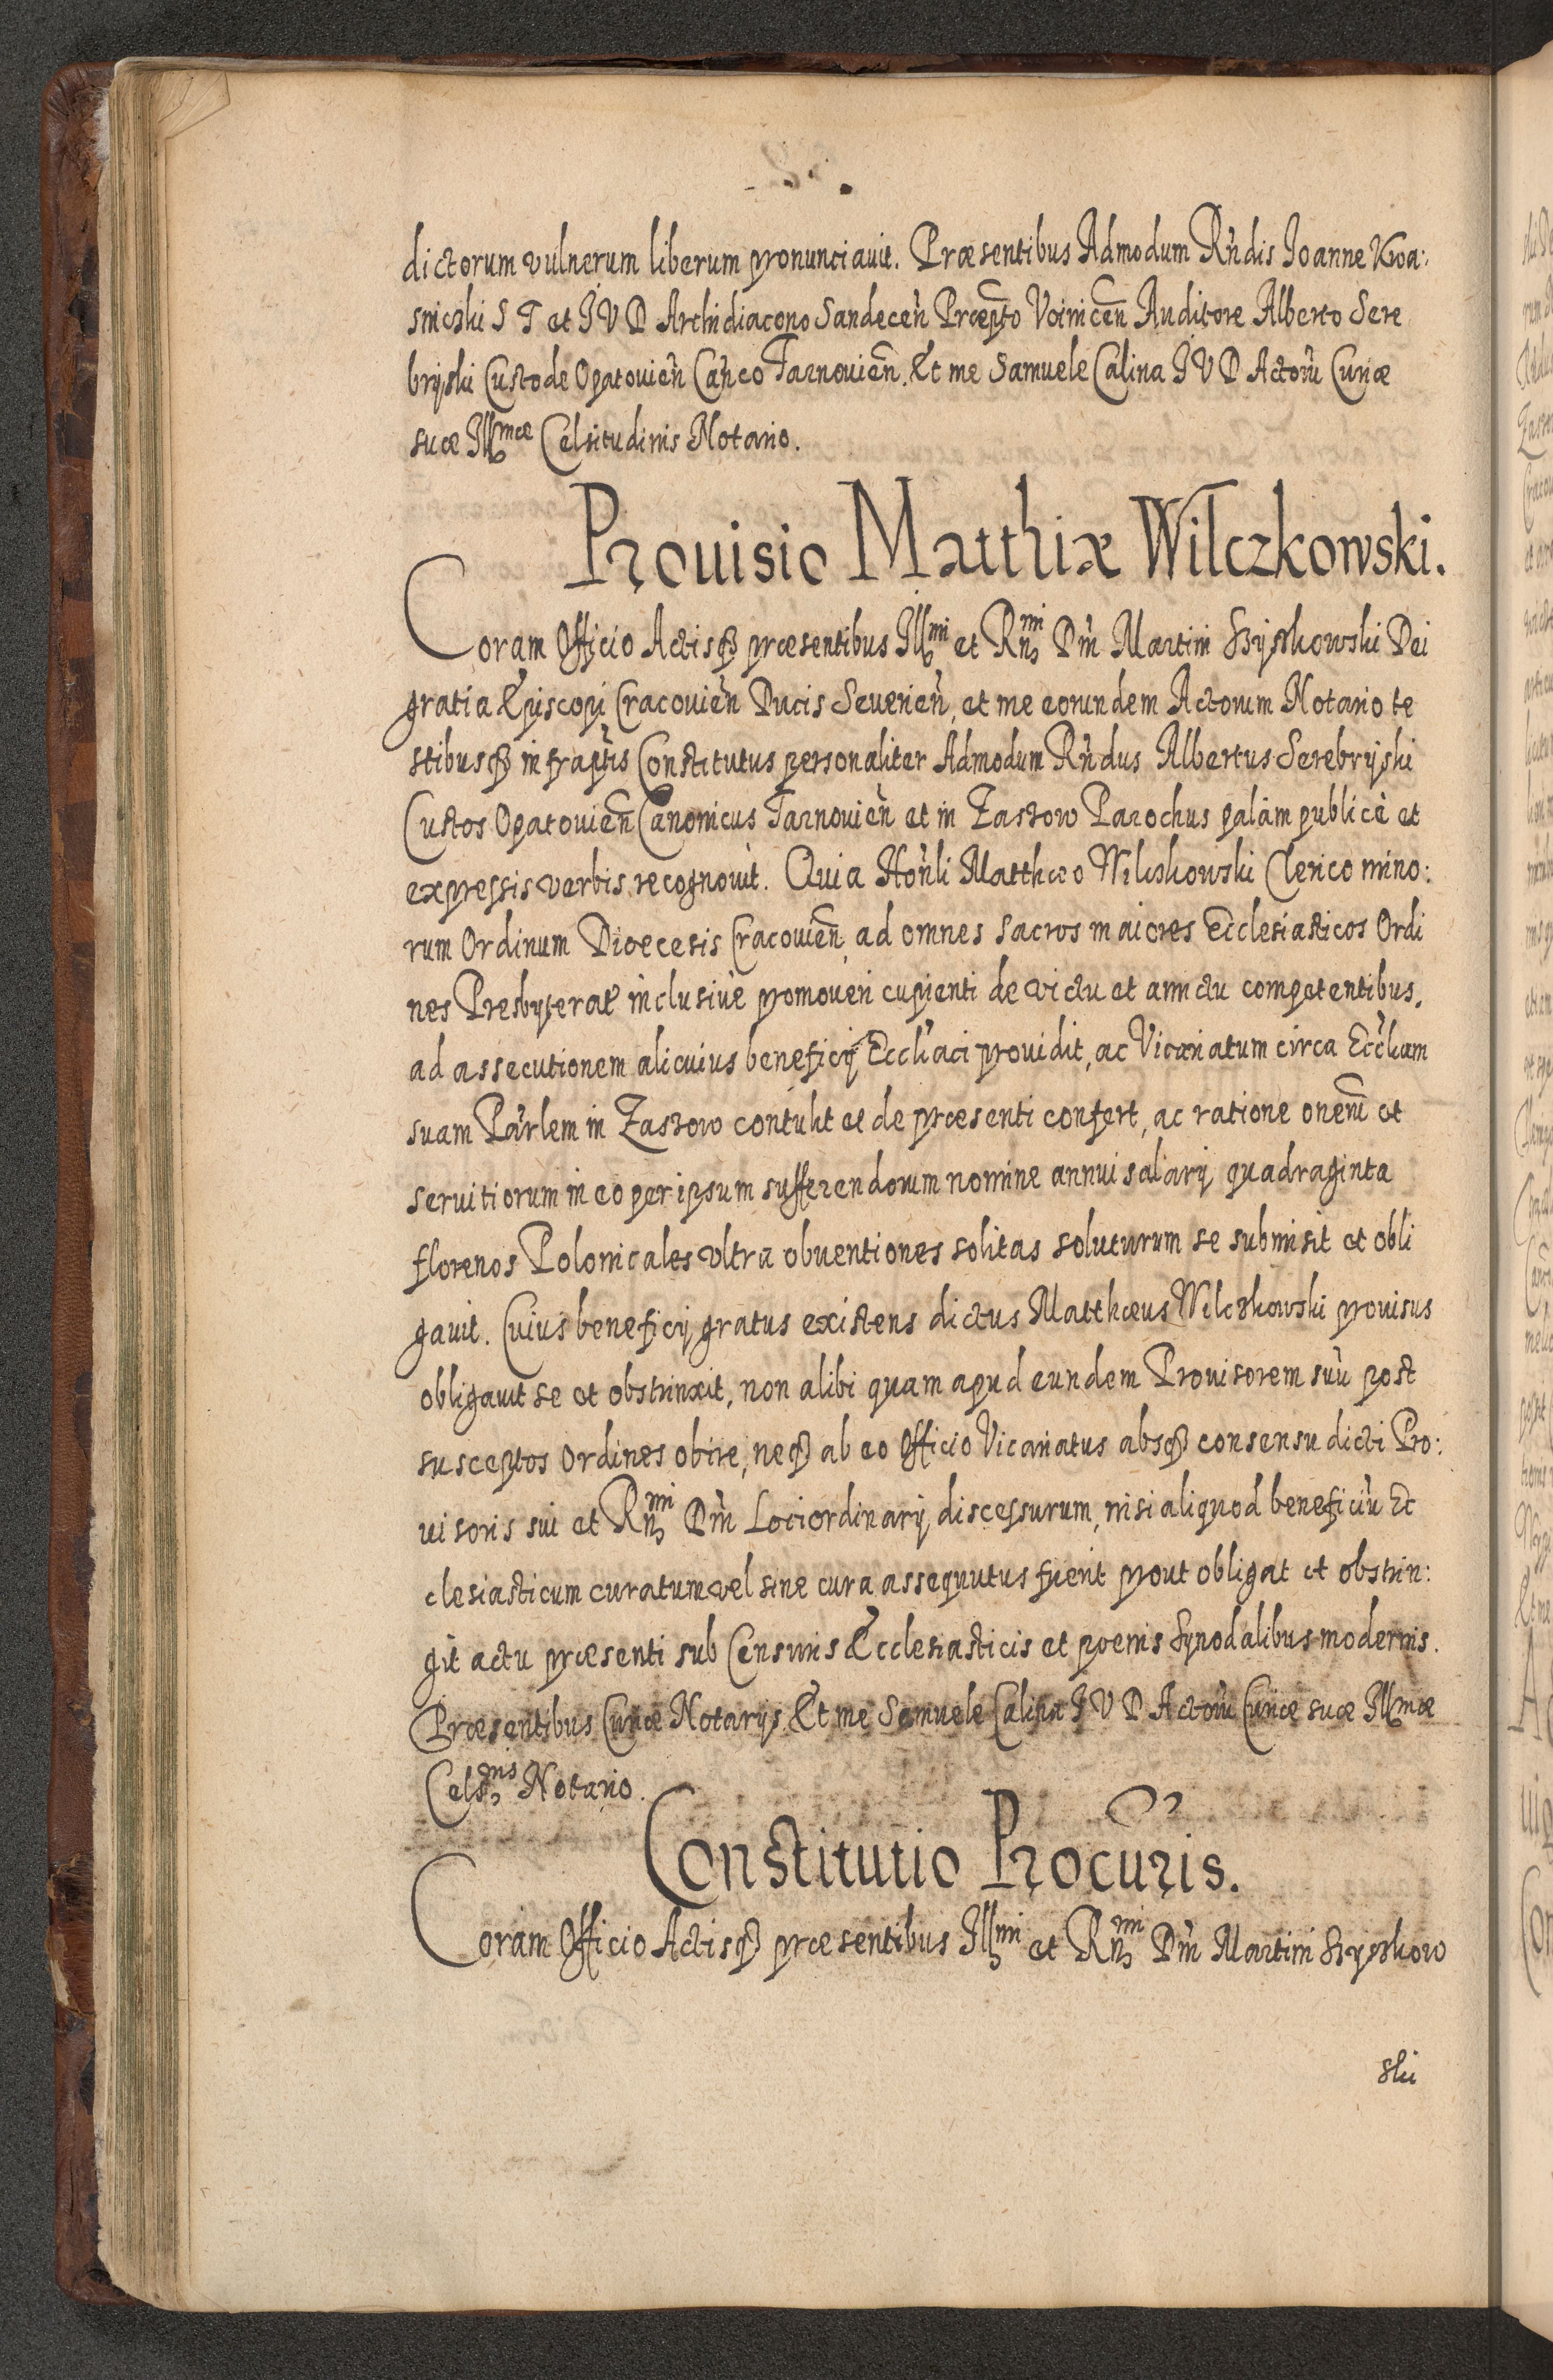 dictorum vulnerum liberum pronunciauit. Præsentibus Admodum Rñdis Ioanne Kwa:
snicski S T et I V D Archidiacono Sandeceñ Præpto Voiniceñ Auditore Alberto Sere
bryski Custode Opatouieñ Cañco Tarnouieñ. Et me Samuele Calina I V D Actorũ Curiæ
suæ Illmæ Celsitudinis Notario.
Prouisio Matthiæ Wilczkowski.
Coram Officio Actisqꝫ præsentibus Illmi et Rñmi Dñi Martini Szyszkowski Dei
gratia Episcopi Cracouieñ Ducis Seuerieñ, et me eorundem Actorum Notario te
stibusqꝫ infraptis Constitutus personaliter Admodum Rñdus Albertus Serebryski
Custos Opatouieñ Canonicus Tarnouieñ et in Zastow Parochus palàm publicè et
expressis verbis recognouit. Quia Hoñli Matthæo Wilczkowski Clerico mino:
rum Ordinum Diœcesis Cracouieñ, ad omnes sacros maiores Ecclesiasticos Ordi
nes Presbyterat9 inclusiuè promoueri cupienti de victu et amictu competentibus,
ad assecutionem alicuius beneficij Eccl'aci prouidit, ac Vicariatum circa Eccl'iam
suam Par'lem in Zastow contulit et de præsenti confert, ac ratione onerũ et
seruitiorum in eo per ipsum sufferendorum nomine annui salarij quadraginta
florenos Polonicales vltra obuentiones solitas soluturum se submisit et obli
gauit. Cuius beneficij gratus existens dictus Matthæus Wilczkowski prouisus
obligauit se et obstrinxit, non alibi quam apud eundem Prouisorem suũ post
susceptos Ordines obire, neqꝫ ab eo Officio Vicariatus absqꝫ consensu dicti Pro:
uisoris sui et Rñmi Dñi Lociordinarij discessurum, nisi aliquod beneficiũ Ec
clesiasticum curatum vel sine cura assequutus fuerit prout obligat et obstrin:
git actu præsenti sub Censuris Ecclesiasticis et pœnis Synodalibus modernis.
Præsentibus Curiæ Notarijs. Et me Samuele Calina I V D Actorũ Curiæ suæ Illmæ
Celsnis Notario.
Constitutio Procuris.
Coram Officio Actisqꝫ præsentibus Illmi et Rñmi Dñi Martini Szyszkow
ski